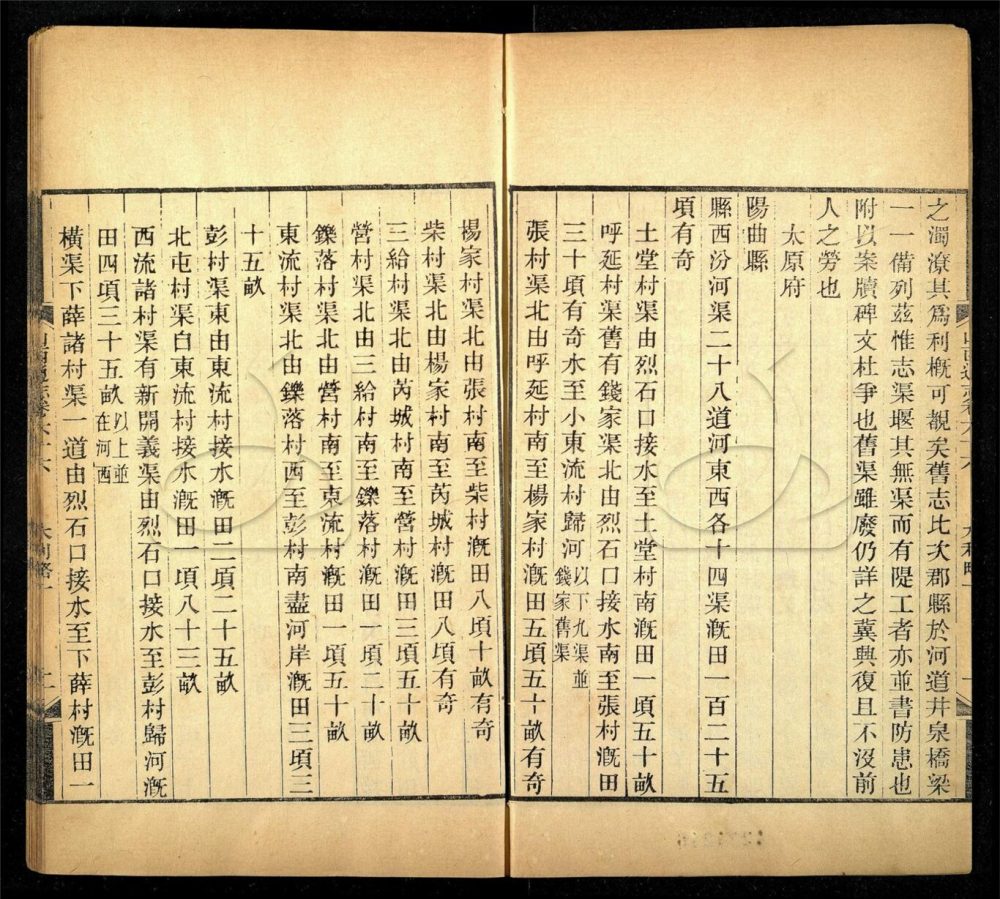 之濁潦其爲利概可覩矣舊志比次郡縣於河道井泉橋梁
一一備列茲惟志渠堰其無渠而有隄工者亦並書防患也
附以案牘碑文杜爭也舊渠雖廢仍詳之冀興復且不沒前
人之勞也
太原府
陽曲縣
縣西汾河渠二十八道河東西各十四渠漑田一百二十五
頃有奇
土堂村渠由烈石口接水至土堂村南漑田一頃五十畝
呼延村渠舊有錢家渠北由烈石口接水南至張村漑田
三十頃有奇水至小東流村歸河以下九渠並錢家舊渠
張村渠北由呼延村南至楊家村漑田五頃五十畝有奇
楊家村渠北由張村南至柴村漑田八頃十畝有奇
柴村渠北由楊家村南至芮城村漑田八頃有奇
三給村渠北由芮城村南至營村漑田三頃五十畝
營村渠北由三給村南至鑠落村漑田一頃二十畝
鑠落村渠北由營村南至東流村漑田一頃五十畝
東流村渠北由鑠落村西至彭村南盡河岸漑田三頃三
十五畝
彭村渠東由東流村接水漑田二頃二十五畝
北屯村渠白東流村接水漑田一頃八十三畝
西流諸村渠有新開義渠由烈石口接水至彭村歸河漑
田四頃三十五畝以上並在河西
橫渠下薛諸村渠一道由烈石口接水至下薛村漑田一